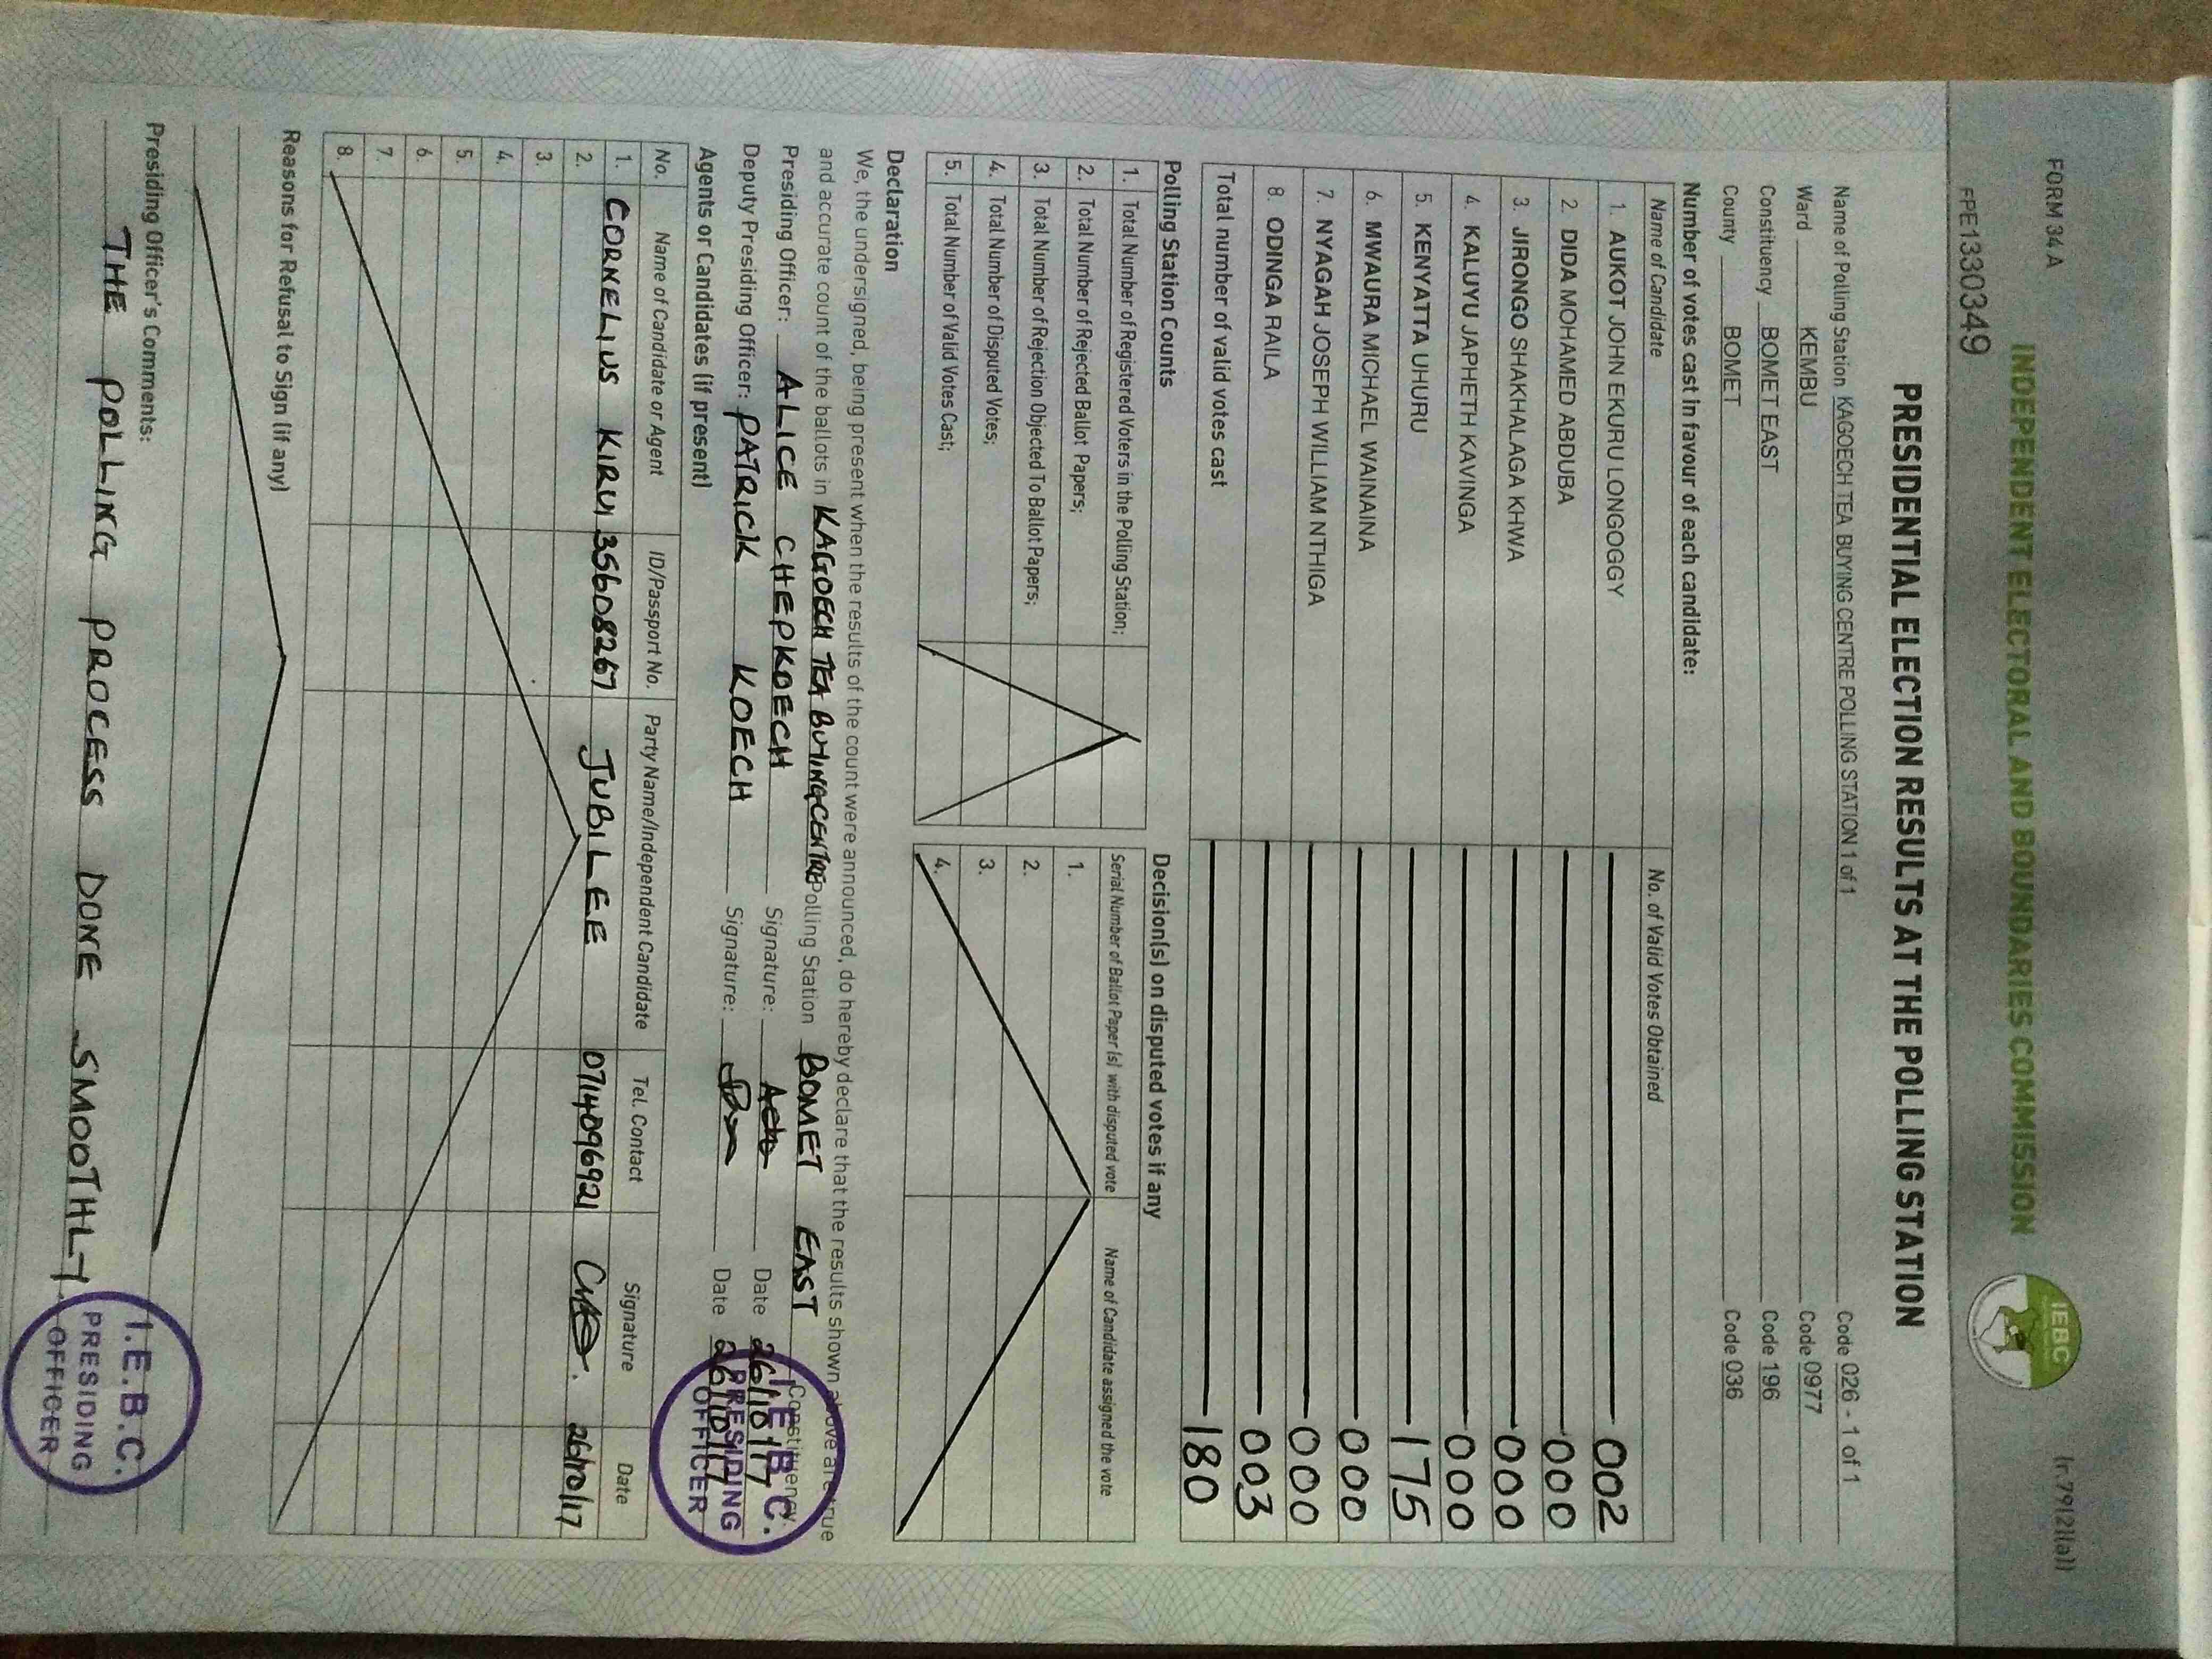 FORM 34 A
(r.79(2)(a))
INDEPENDENT ELECTORAL AND BOUNDARIES COMMISSION
IEBC
EPE1330349
PRESIDENTIAL ELECTION RESULTS AT THE POLLING STATION
Name of Polling Station KAGOECH TEA BUYING CENTRE POLLING STATION 1 of 1 Code 026 - 1 of 1
Ward KEMBU Code 0977
Constituency BOMET EAST Code 196
County BOMET Code 036
Number of votes cast in favour of each candidate:
Name of Candidate No. of Valid Votes Obtained
1. AUKOT JOHN EKURU LONGOGGY 002
2. DIDA MOHAMED ABDUBA 000
3. JIRONGO SHAKHALAGA KHWA 000
4. KALUYU JAPHETH KAVINGA 000
5. KENYATTA UHURU 175
6. MWAURA MICHAEL WAINAINA 000
7. NYAGAH JOSEPH WILLIAM NTHIGA 000
8. ODINGA RAILA 003
Total number of valid votes cast 180
Polling Station Counts
1. Total Number of Registered Voters in the Polling Station;
2. Total Number of Rejected Ballot Papers;
3. Total Number of Rejection Objected To Ballot Papers;
4. Total Number of Disputed Votes;
5. Total Number of Valid Votes Cast;
Decision(s) on disputed votes if any
Serial Number of Ballot Paper (s) with disputed vote Name of Candidate assigned the vote
1.
2.
3.
4.
Declaration
We, the undersigned, being present when the results of the count were announced, do hereby declare that the results shown above are true
and accurate count of the ballots in KAGOECH TEA BUYING CENTRE Polling Station BOMET EAST Constituency.
Presiding Officer: ALICE CHEPKOECH Signature: Date 26/10/17
Deputy Presiding Officer: PATRICK KOECH Signature: Date 26/10/17
I.E.B.C.
PRESIDING
OFFICER
Agents or Candidates (if present)
No. Name of Candidate or Agent ID/Passport No. Party Name/Independent Candidate Tel. Contact Signature Date
1. CORNELIUS KIRUI 35608267 JUBILEE 0714096921 26/10/17
2.
3.
4.
5.
6.
7.
8.
Reasons for Refusal to Sign (if any)
Presiding Officer's Comments:
THE POLLING PROCESS DONE SMOOTHLY.
I.E.B.C.
PRESIDING
OFFICER